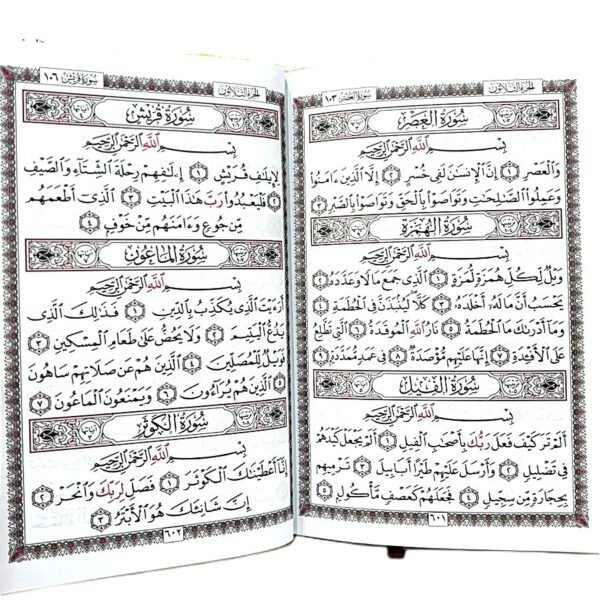 الجزء الثلاثون سورة العصر ١٠٣
سُورَةُ العَصْرِ
بِسْمِ ٱللَّهِ ٱلرَّحْمَٰنِ ٱلرَّحِيمِ
وَٱلْعَصْرِ ١ إِنَّ ٱلْإِنسَٰنَ لَفِى خُسْرٍ ٢ إِلَّا ٱلَّذِينَ ءَامَنُوا۟
وَعَمِلُوا۟ ٱلصَّٰلِحَٰتِ وَتَوَاصَوْا۟ بِٱلْحَقِّ وَتَوَاصَوْا۟ بِٱلصَّبْرِ ٣
سُورَةُ الهُمَزَةِ
بِسْمِ ٱللَّهِ ٱلرَّحْمَٰنِ ٱلرَّحِيمِ
وَيْلٌ لِّكُلِّ هُمَزَةٍ لُّمَزَةٍ ١ ٱلَّذِى جَمَعَ مَالًا وَعَدَّدَهُۥ ٢
يَحْسَبُ أَنَّ مَالَهُۥٓ أَخْلَدَهُۥ ٣ كَلَّا لَيُنۢبَذَنَّ فِى ٱلْحُطَمَةِ ٤
وَمَآ أَدْرَىٰكَ مَا ٱلْحُطَمَةُ ٥ نَارُ ٱللَّهِ ٱلْمُوقَدَةُ ٦ ٱلَّتِى تَطَّلِعُ
عَلَى ٱلْأَفْـِٔدَةِ ٧ إِنَّهَا عَلَيْهِم مُّؤْصَدَةٌ ٨ فِى عَمَدٍ مُّمَدَّدَةٍۭ ٩
سُورَةُ الفِيلِ
بِسْمِ ٱللَّهِ ٱلرَّحْمَٰنِ ٱلرَّحِيمِ
أَلَمْ تَرَ كَيْفَ فَعَلَ رَبُّكَ بِأَصْحَٰبِ ٱلْفِيلِ ١ أَلَمْ يَجْعَلْ كَيْدَهُمْ
فِى تَضْلِيلٍ ٢ وَأَرْسَلَ عَلَيْهِمْ طَيْرًا أَبَابِيلَ ٣ تَرْمِيهِم
بِحِجَارَةٍ مِّن سِجِّيلٍ ٤ فَجَعَلَهُمْ كَعَصْفٍ مَّأْكُولٍۭ ٥
٦٠١
الجزء الثلاثون سورة قريش ١٠٦
سُورَةُ قُرَيْشٍ
بِسْمِ ٱللَّهِ ٱلرَّحْمَٰنِ ٱلرَّحِيمِ
لِإِيلَٰفِ قُرَيْشٍ ١ إِۦلَٰفِهِمْ رِحْلَةَ ٱلشِّتَآءِ وَٱلصَّيْفِ
٢ فَلْيَعْبُدُوا۟ رَبَّ هَٰذَا ٱلْبَيْتِ ٣ ٱلَّذِىٓ أَطْعَمَهُم
مِّن جُوعٍ وَءَامَنَهُم مِّنْ خَوْفٍۭ ٤
سُورَةُ المَاعُونِ
بِسْمِ ٱللَّهِ ٱلرَّحْمَٰنِ ٱلرَّحِيمِ
أَرَءَيْتَ ٱلَّذِى يُكَذِّبُ بِٱلدِّينِ ١ فَذَٰلِكَ ٱلَّذِى
يَدُعُّ ٱلْيَتِيمَ ٢ وَلَا يَحُضُّ عَلَىٰ طَعَامِ ٱلْمِسْكِينِ ٣
فَوَيْلٌ لِّلْمُصَلِّينَ ٤ ٱلَّذِينَ هُمْ عَن صَلَاتِهِمْ سَاهُونَ
٥ ٱلَّذِينَ هُمْ يُرَآءُونَ ٦ وَيَمْنَعُونَ ٱلْمَاعُونَ ٧
سُورَةُ الكَوْثَرِ
بِسْمِ ٱللَّهِ ٱلرَّحْمَٰنِ ٱلرَّحِيمِ
إِنَّآ أَعْطَيْنَٰكَ ٱلْكَوْثَرَ ١ فَصَلِّ لِرَبِّكَ وَٱنْحَرْ ٢
إِنَّ شَانِئَكَ هُوَ ٱلْأَبْتَرُ ٣
٦٠٢